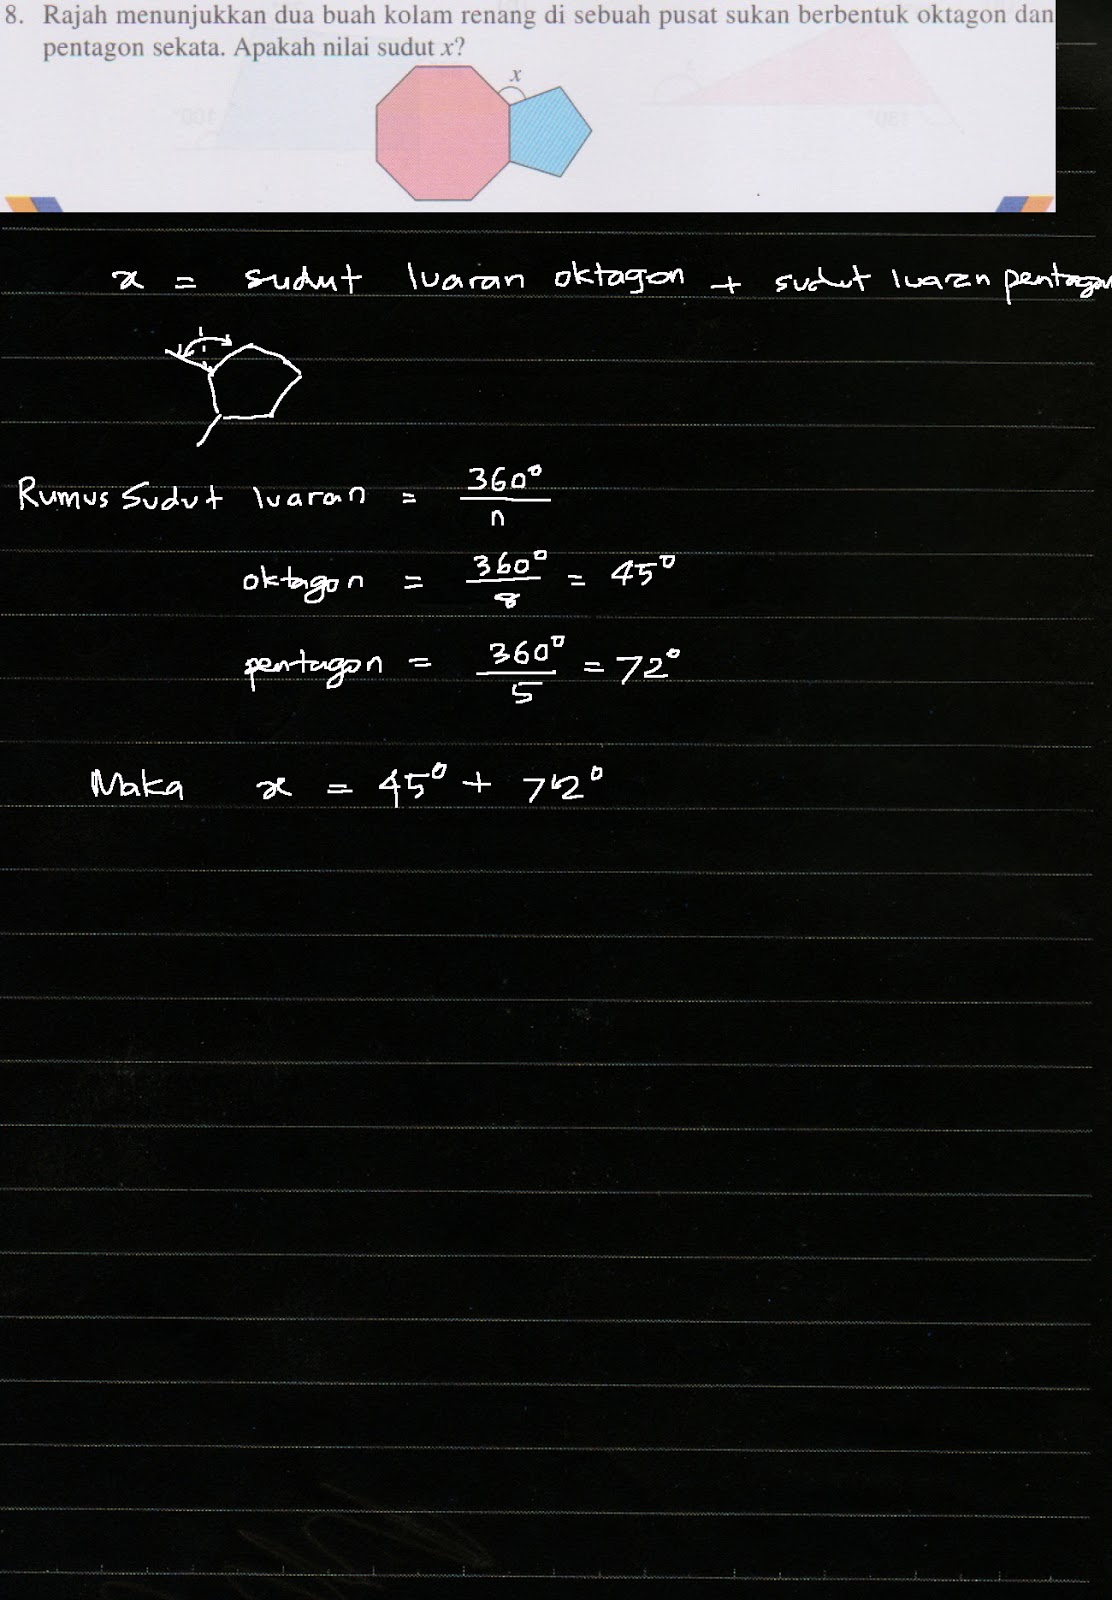 8. Rajah menunjukkan dua buah kolam renang di sebuah pusat sukan berbentuk oktagon dan
pentagon sekata. Apakah nilai sudut x?
x
x = sudut luaran oktagon + sudut luaran pentagon
Rumus Sudut luaran = 360°/n
oktagon = 360°/8 = 45°
pentagon = 360°/5 = 72°
Maka x = 45° + 72°